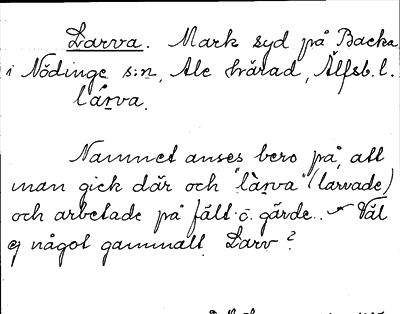 Larva. Mark syd på Backa
i Nödinge s:n, Ale härad, Älfsb. l.
lárva.
Namnet anses bero på, att
man gick där och "làrva" (larvade)
och arbetade på fält o. gärde. Väl
ej något gammalt Larv?